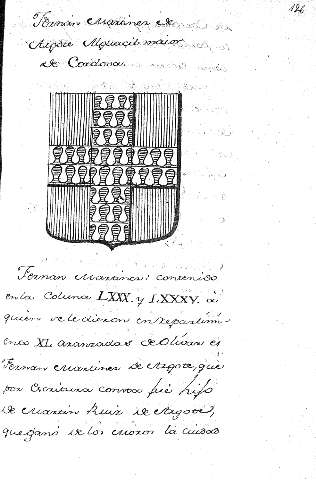 126
Fernan Martinez de
Argote Alguacil maior
de Cordova.
Fernan Martinez: contenido
en la Coluna LXXX. y LXXXV. a
quien se le dieron en Repartimi-
ento XL aranzadas de Olivar es
Fernan Martinez de Argote, que
por Escritura consta fue hijo
de Martin Ruiz de Argote,
que ganó de los moros la ciudad